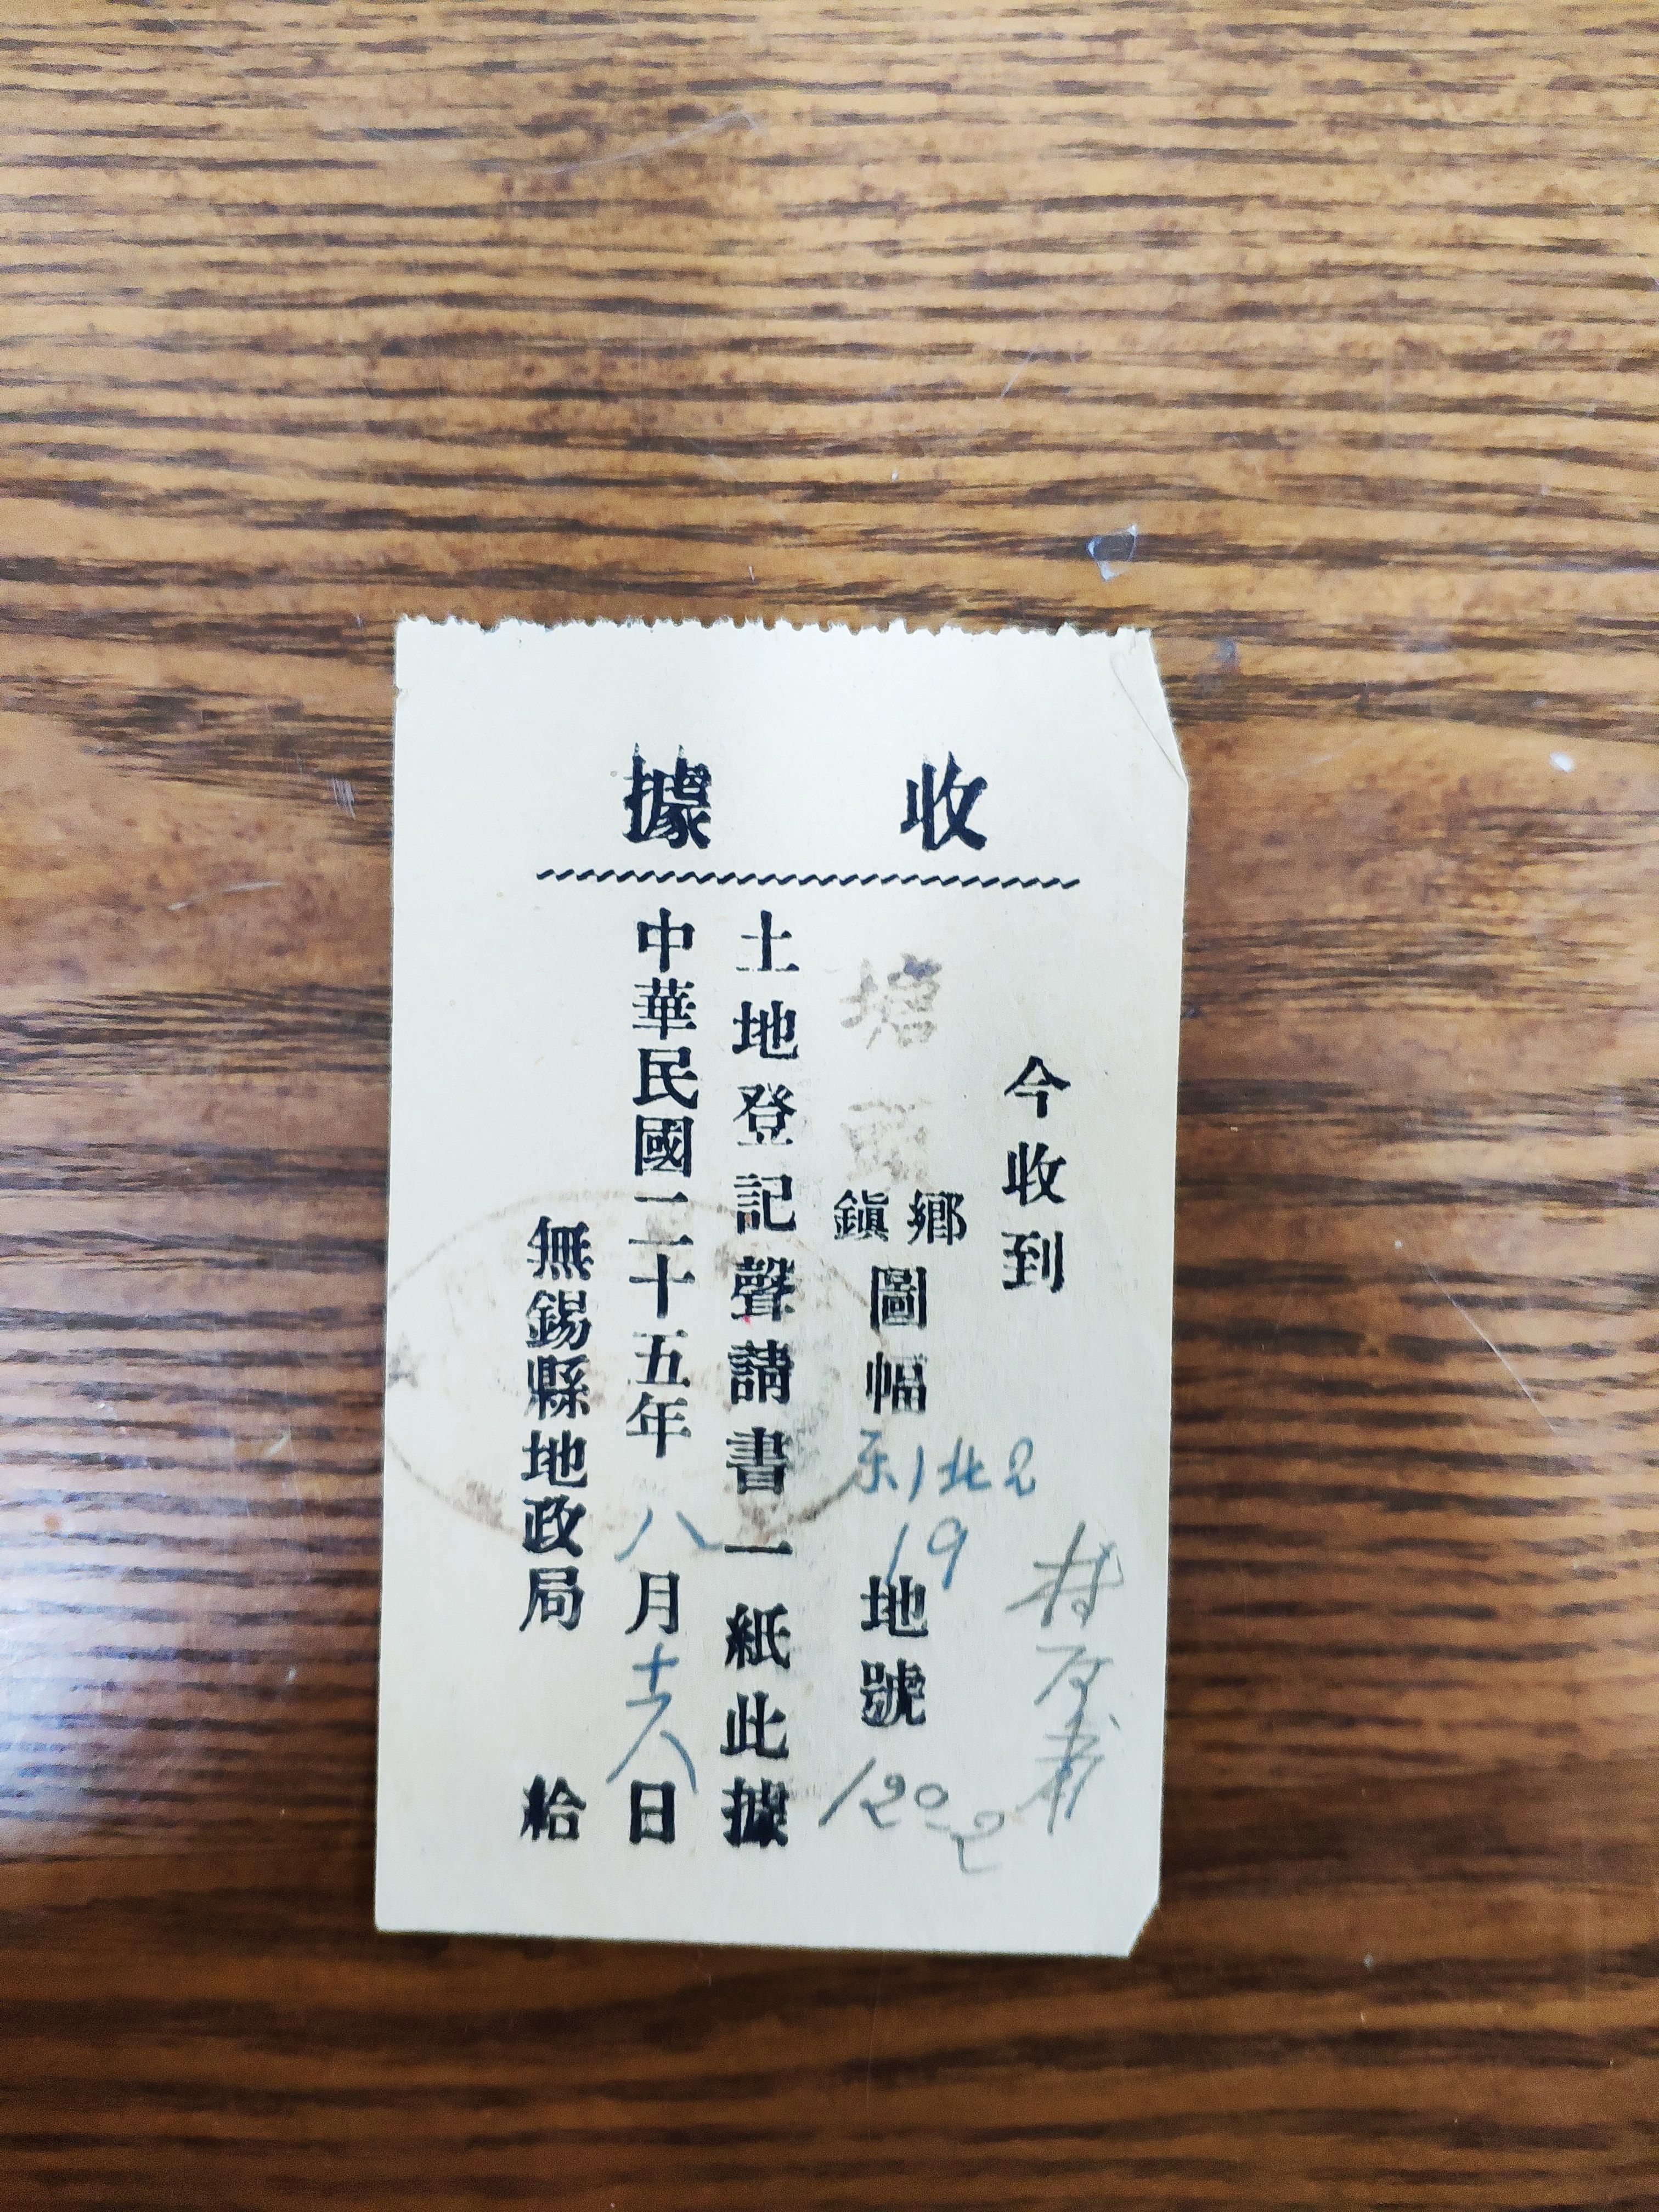 收據
今收到
塘頭鄉鎭圖幅东1北2 19地號120-2
土地登記聲請書一紙此據
中華民國二十五年八月十八日
無錫縣地政局給